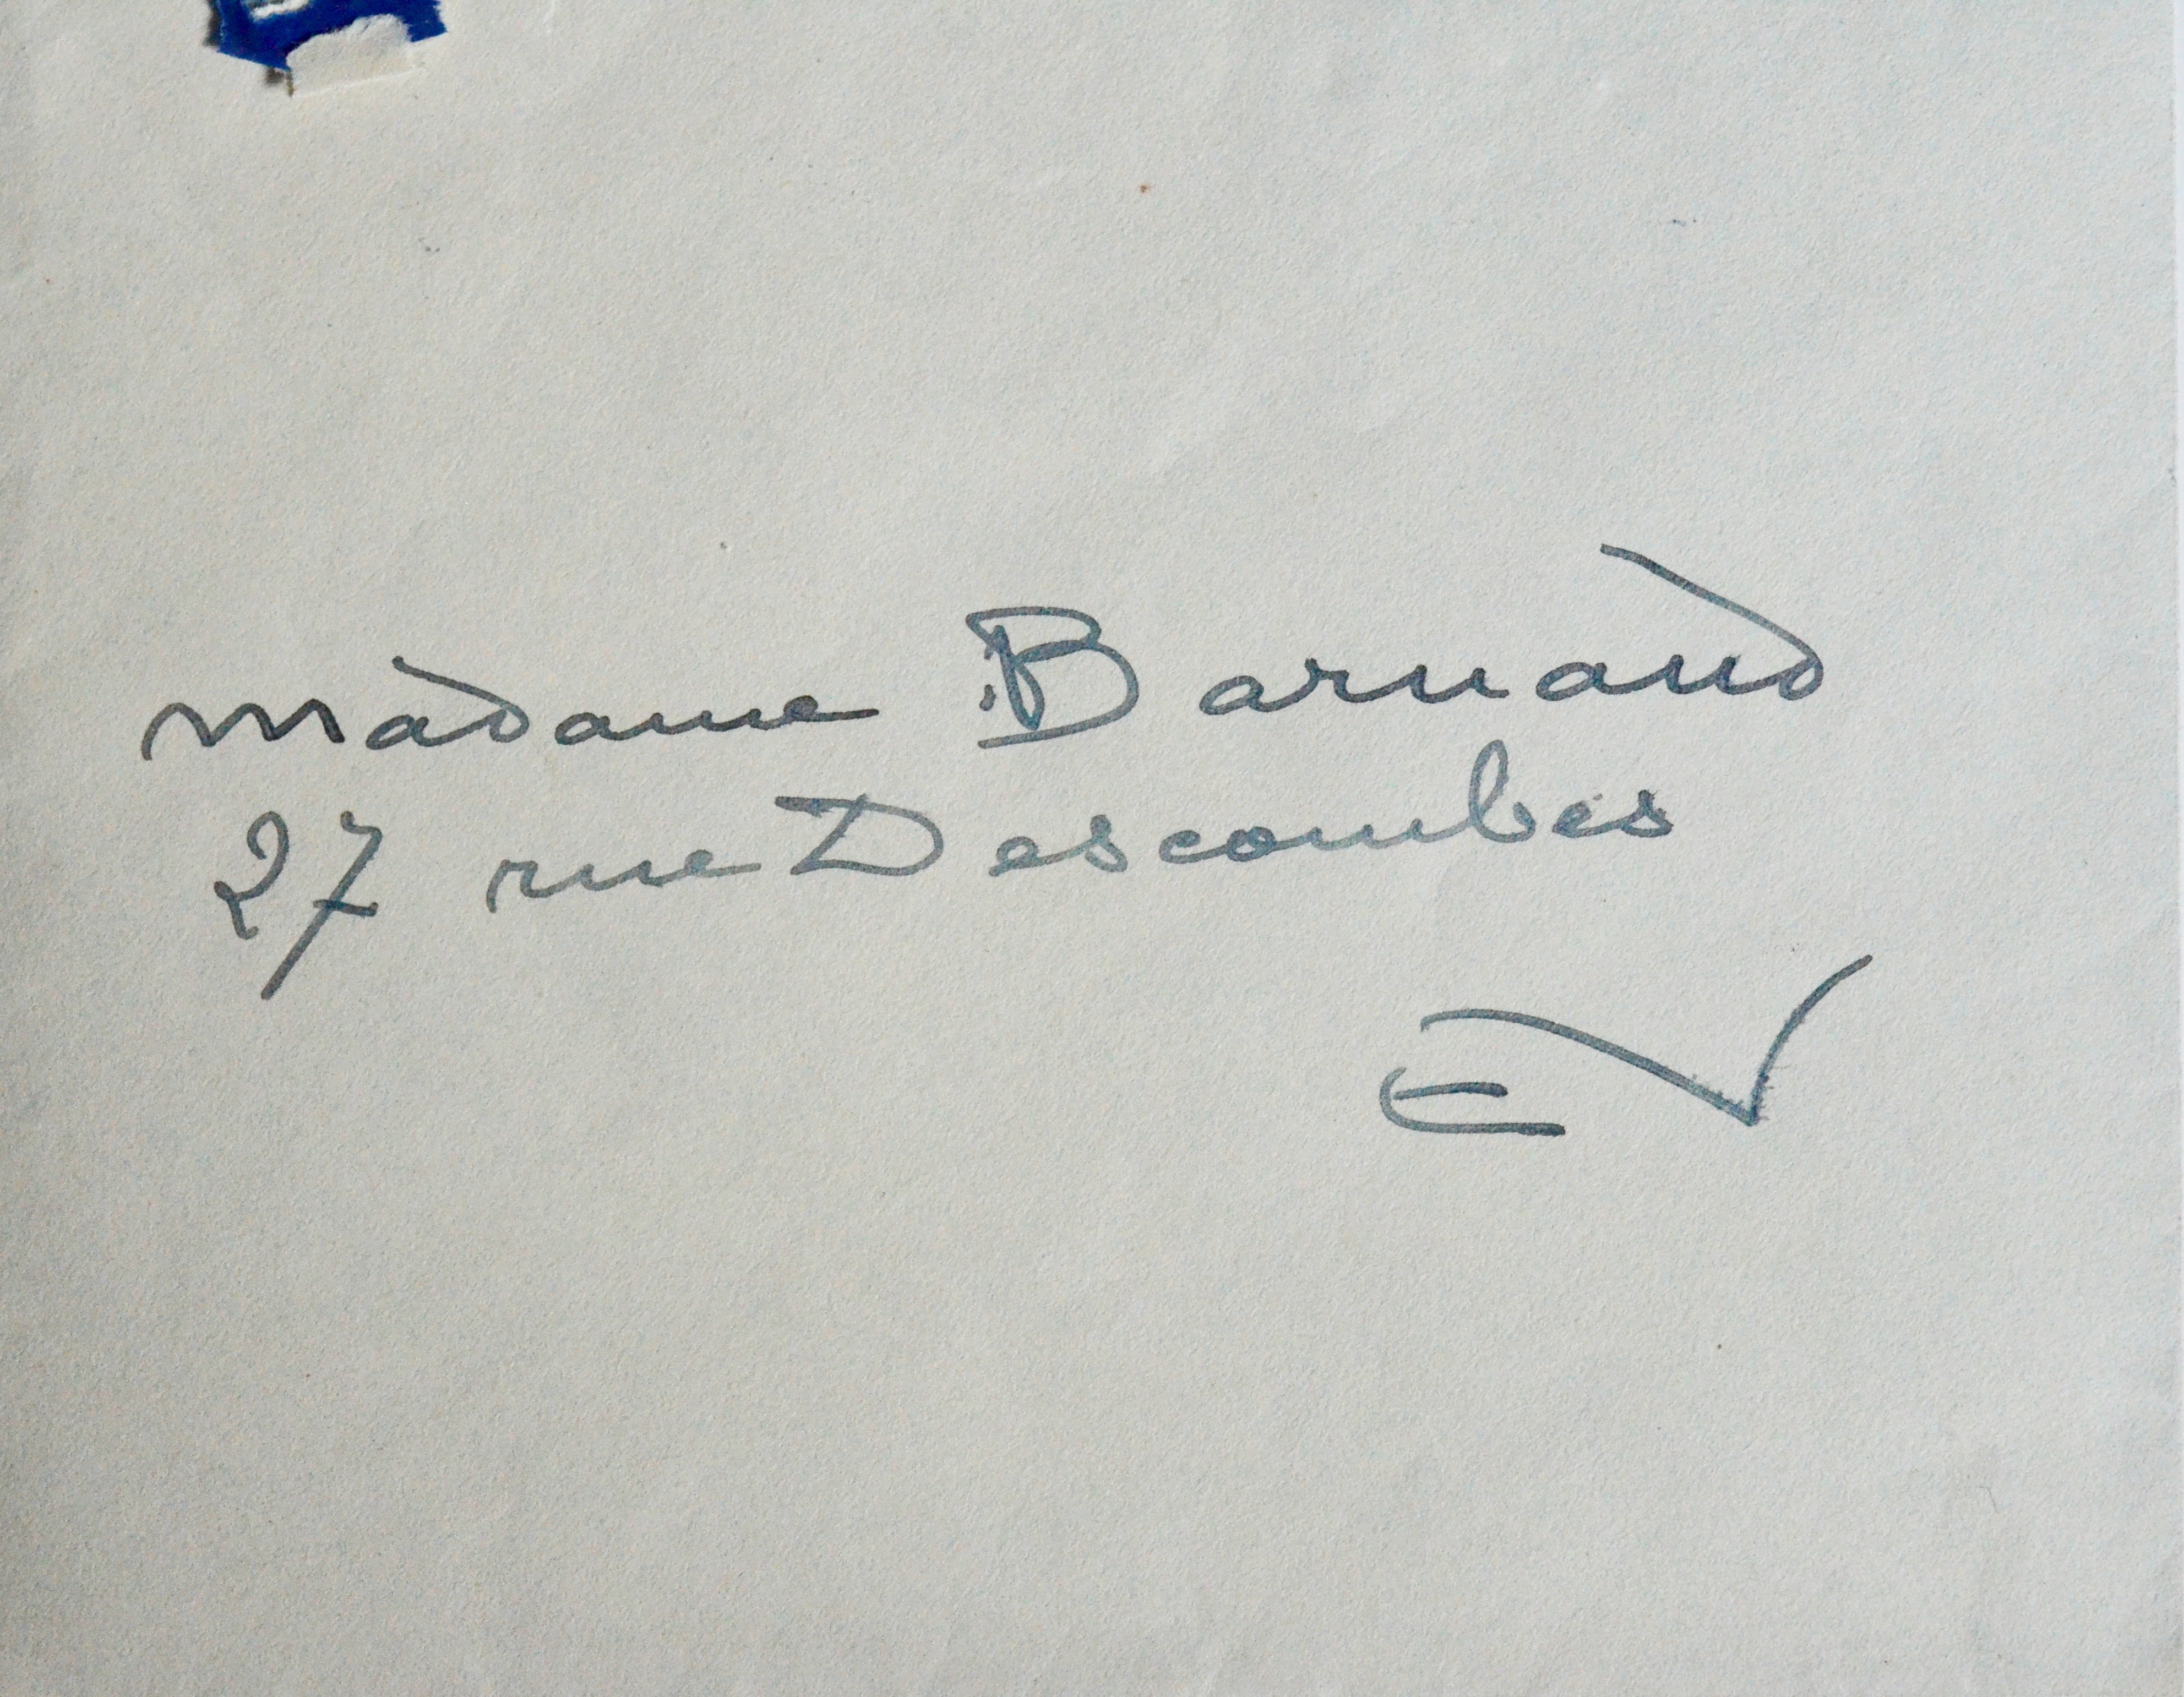 Madame Barnaud
27 rue Descombes
EV